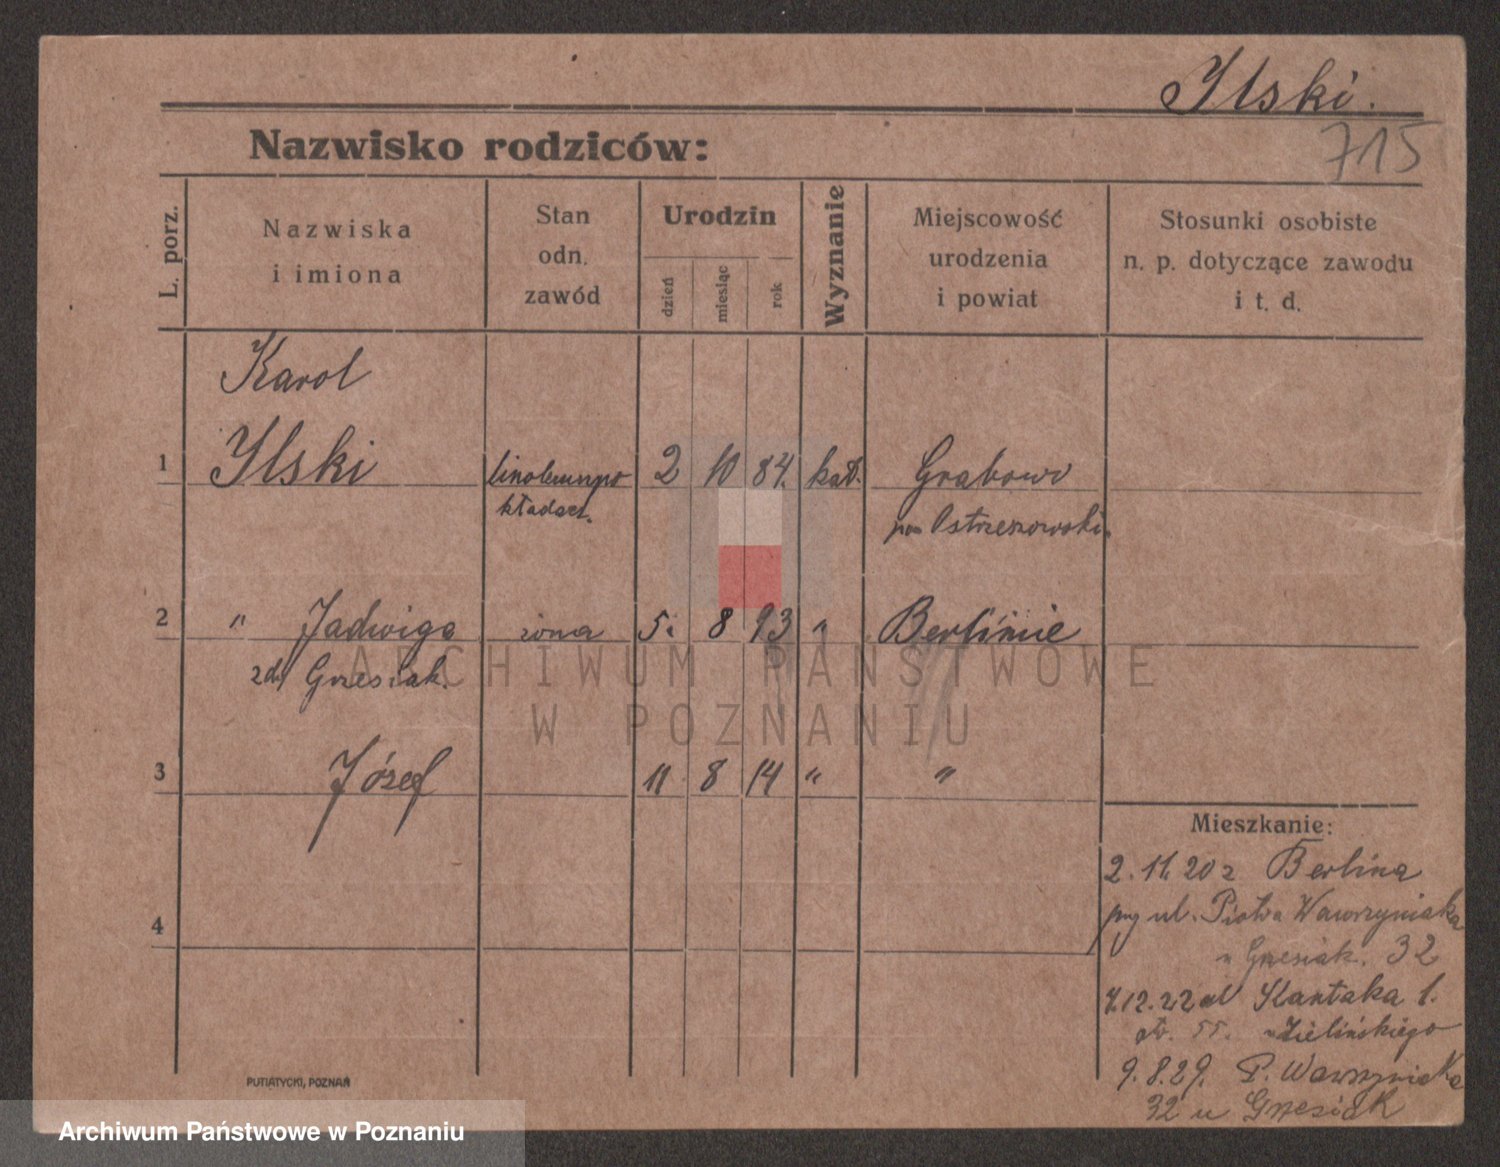 Ilski.
715
Nazwisko rodziców:
L. porz.
Nazwiska
i imiona
Stan
odn.
zawód
Urodzin
dzień
miesiąc
rok
Wyznanie
Miejscowość
urodzenia
i powiat
Stosunki osobiste
n. p. dotyczące zawodu
i t. d.
Karol
1 Ilski linoleumpo 2 10 84. kat. Grabow
kładacz. pow Ostrzeszowski.
2 " Jadwiga żona 5. 8 93 " Berlinie
zd. Grzesiak.
3 Józef 11 8 14 " "
4
Mieszkanie:
2. 11. 20 z Berlina
przy ul. Piotra Wawrzyniaka
u Grzesiak. 32
7.12.22 ul Kantaka 1.
u Zielińskiego
9.8.29. P. Wawrzyniaka
32 u Grzesiak
PUTIATYCKI, POZNAŃ
ARCHIWUM PAŃSTWOWE
W POZNANIU
Archiwum Państwowe w Poznaniu